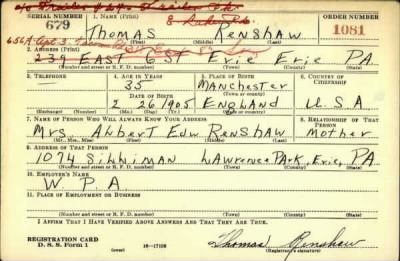 SERIAL NUMBER 1. NAME (Print) ORDER NUMBER
679 Thomas Renshaw 1081
(First) (Middle) (Last)
2. ADDRESS (Print)
239 EAST 6 ST Erie Erie PA.
(Number and street or R. F. D. number) (Town) (County) (State)
3. TELEPHONE 4. AGE IN YEARS 5. PLACE OF BIRTH 6. COUNTRY OF CITIZENSHIP
35 MANCHESTER
DATE OF BIRTH (Town or county)
2 26 1905 ENGLAND U.S.A
(Exchange) (Number) (Mo.) (Day) (Yr.) (State or country)
7. NAME OF PERSON WHO WILL ALWAYS KNOW YOUR ADDRESS 8. RELATIONSHIP OF THAT PERSON
Mrs Albert Edw Renshaw Mother
(Mr., Mrs., Miss) (First) (Middle) (Last)
9. ADDRESS OF THAT PERSON
1074 Silliman Lawrence Park, Erie, PA
(Number and street or R. F. D. number) (Town) (County) (State)
10. EMPLOYER'S NAME
W. P. A.
11. PLACE OF EMPLOYMENT OR BUSINESS
(Number and street or R. F. D. number) (Town) (County) (State)
I AFFIRM THAT I HAVE VERIFIED ABOVE ANSWERS AND THAT THEY ARE TRUE.
REGISTRATION CARD
D. S. S. Form 1 (over) 16-17105 Thomas Renshaw
(Registrant's signature)